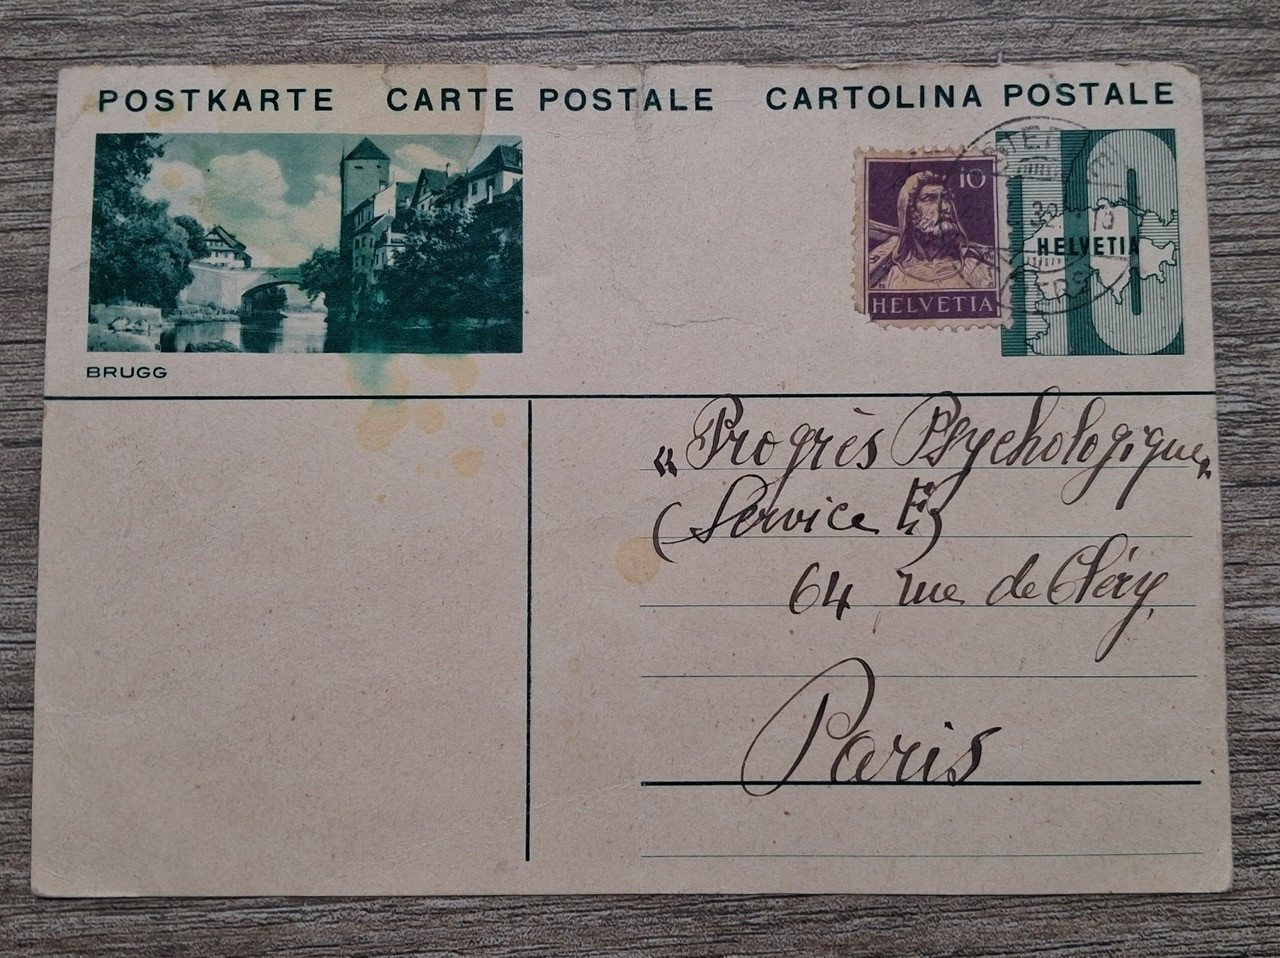 POSTKARTE CARTE POSTALE CARTOLINA POSTALE
10
HELVETIA
10
HELVETIA
32
BRUGG
« Progrès Psychologique »
(Service E)
64 rue de Cléry,
Paris